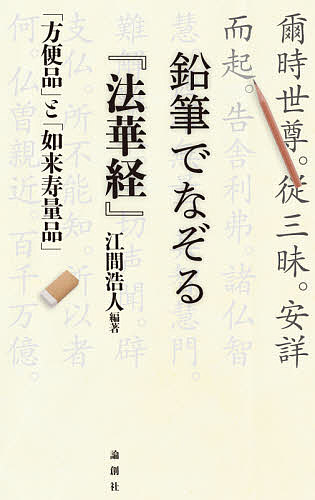 爾時世尊。從三昧。安詳
而起。告舎利弗。諸仏智
慧門。
難解
切声聞。辟
支仏。所不能知。所以者
何。仏曾親近 百千万億。
鉛筆でなぞる
『法華経』
江間浩人 編著
「方便品」と「如来寿量品」
論創社